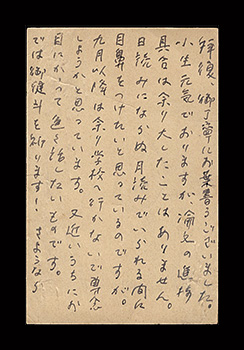 拝復、御丁寧にお葉書うございました。
小生元気でありますが、論文の進捗
具合は余り大したことはありません。
日読みになかぬ月読みでいられる間に
目鼻をつけたいと思っているのですが。
九月以降は余り学校へ行かないで専念
しようかと思っています。又近いうちにお
目にかかって色々話したいものです。
では御健斗を祈ります! さようなら